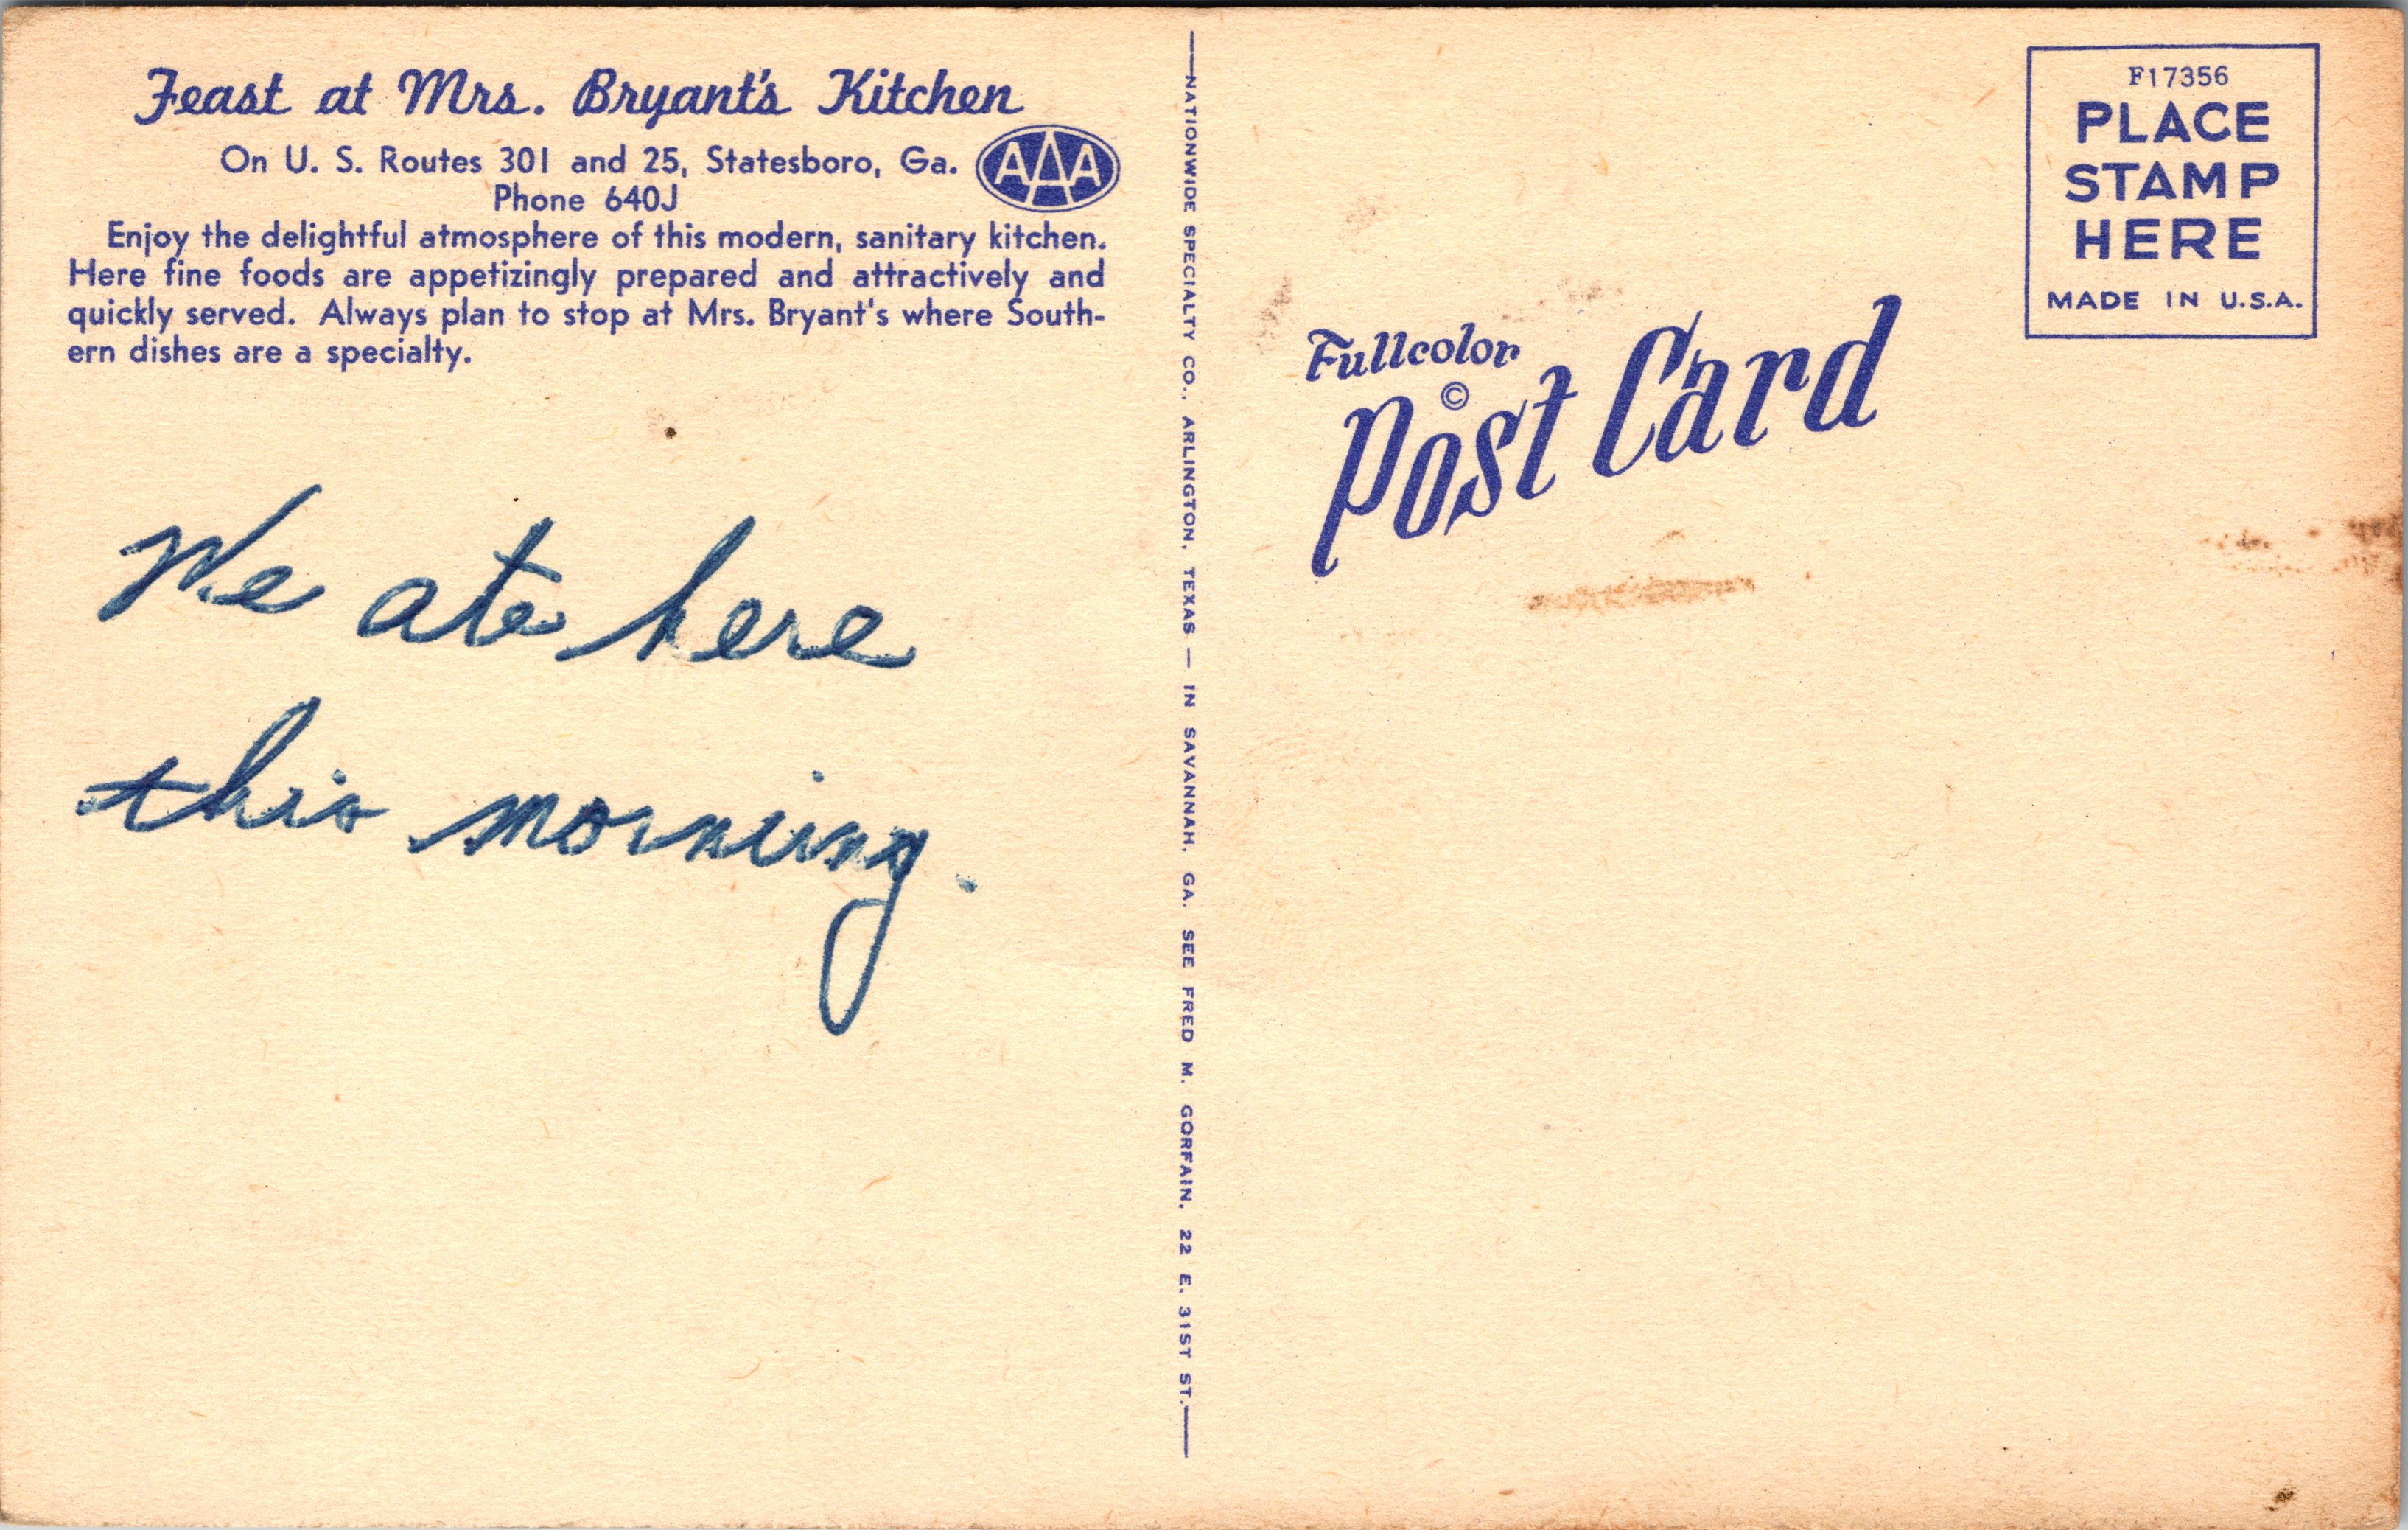 Feast at Mrs. Bryant's Kitchen
On U. S. Routes 301 and 25, Statesboro, Ga.
AAA
Phone 640J
Enjoy the delightful atmosphere of this modern, sanitary kitchen.
Here fine foods are appetizingly prepared and attractively and
quickly served. Always plan to stop at Mrs. Bryant's where South-
ern dishes are a specialty.
We ate here
this morning.
NATIONWIDE SPECIALTY CO., ARLINGTON, TEXAS — IN SAVANNAH, GA. SEE FRED M. GORFAIN, 22 E. 31ST ST.
Fullcolor
©
Post Card
F17356
PLACE
STAMP
HERE
MADE IN U.S.A.